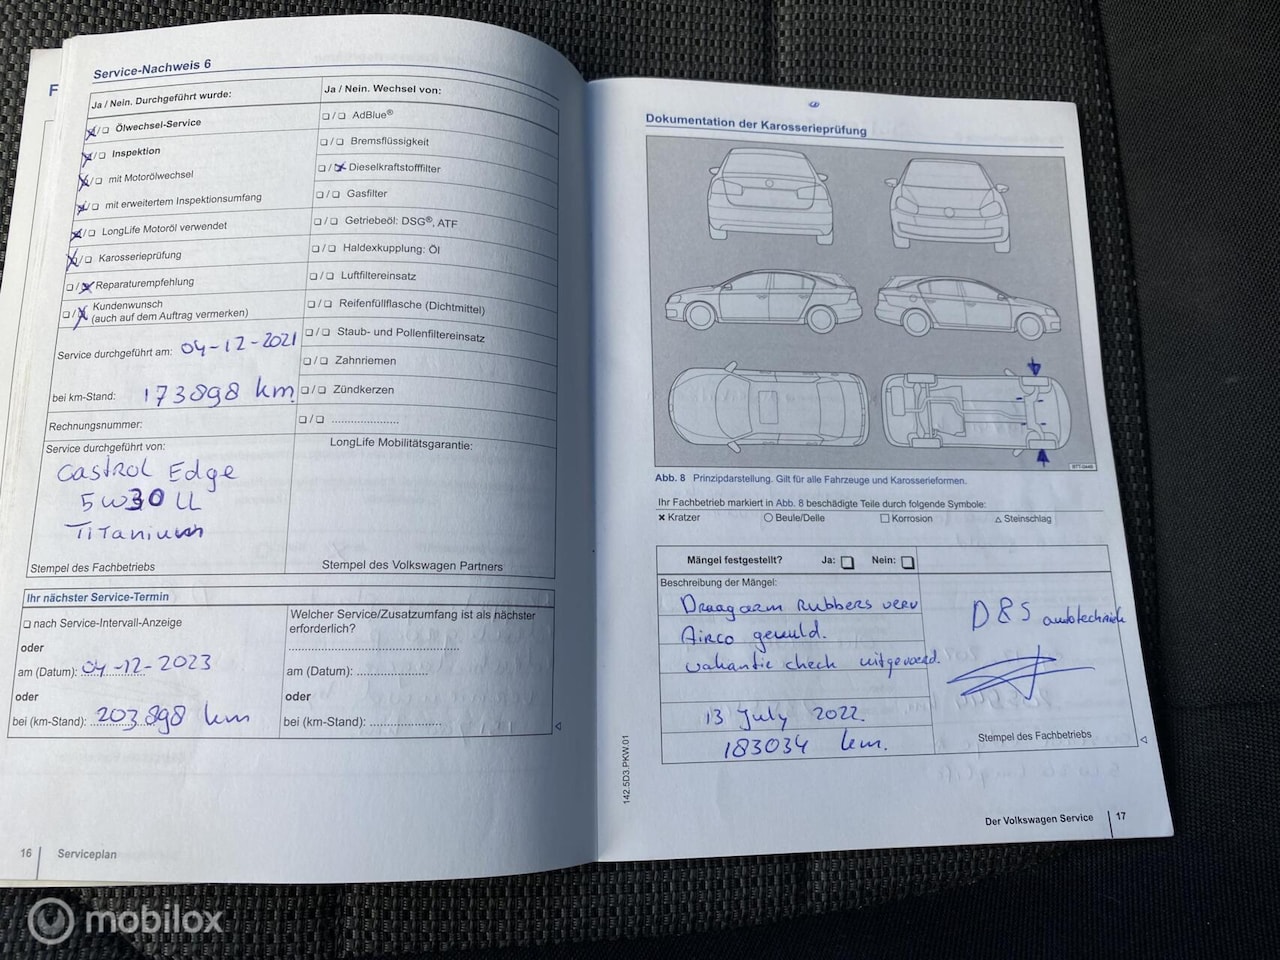 Service-Nachweis 6
Ja / Nein. Durchgeführt wurde:
Ölwechsel-Service
Inspektion
mit Motorölwechsel
mit erweitertem Inspektionsumfang
LongLife Motoröl verwendet
Karosserieprüfung
Reparaturempfehlung
Kundenwunsch
(auch auf dem Auftrag vermerken)
Service durchgeführt am: 04-12-2021
bei km-Stand: 173898 km
Rechnungsnummer:
Service durchgeführt von:
Castrol Edge
5W30 LL
Titanium
Stempel des Fachbetriebs
Ja / Nein. Wechsel von:
AdBlue®
Bremsflüssigkeit
Dieselkraftstofffilter
Gasfilter
Getriebeöl: DSG®, ATF
Haldexkupplung: Öl
Luftfiltereinsatz
Reifenfüllflasche (Dichtmittel)
Staub- und Pollenfiltereinsatz
Zahnriemen
Zündkerzen
LongLife Mobilitätsgarantie:
Stempel des Volkswagen Partners
Ihr nächster Service-Termin
nach Service-Intervall-Anzeige
oder
am (Datum): 04-12-2023
oder
bei (km-Stand): 203898 km
Welcher Service/Zusatzumfang ist als nächster
erforderlich?
am (Datum):
oder
bei (km-Stand):
16 Serviceplan
Dokumentation der Karosserieprüfung
Abb. 8 Prinzipdarstellung. Gilt für alle Fahrzeuge und Karosserieformen.
Ihr Fachbetrieb markiert in Abb. 8 beschädigte Teile durch folgende Symbole:
Kratzer Beule/Delle Korrosion Steinschlag
Mängel festgestellt? Ja: Nein:
Beschreibung der Mängel:
Draagarm Rubbers verv
Airco gevuld.
vakantie check uitgevoerd.
13 July 2022.
183034 km.
D&S autotechniek
Stempel des Fachbetriebs
142.5D3.PKW.01
Der Volkswagen Service 17
mobilox